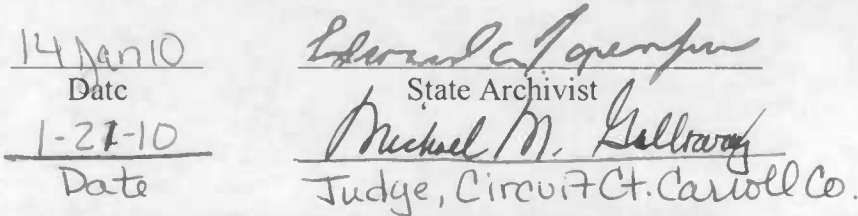 14 Jan 10 Edward C. Papenfuse
Date State Archivist
1-21-10 Michael M. Galloway
Date Judge, Circuit Ct. Carroll Co.